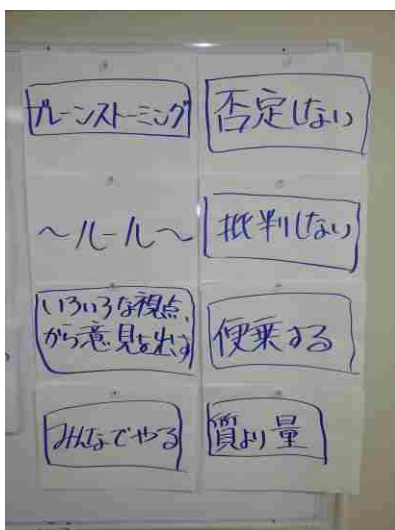 ブレーンストーミング
～ルール～
いろいろな視点
から意見を出す
みんなでやる
否定しない
批判しない
便乗する
質より量